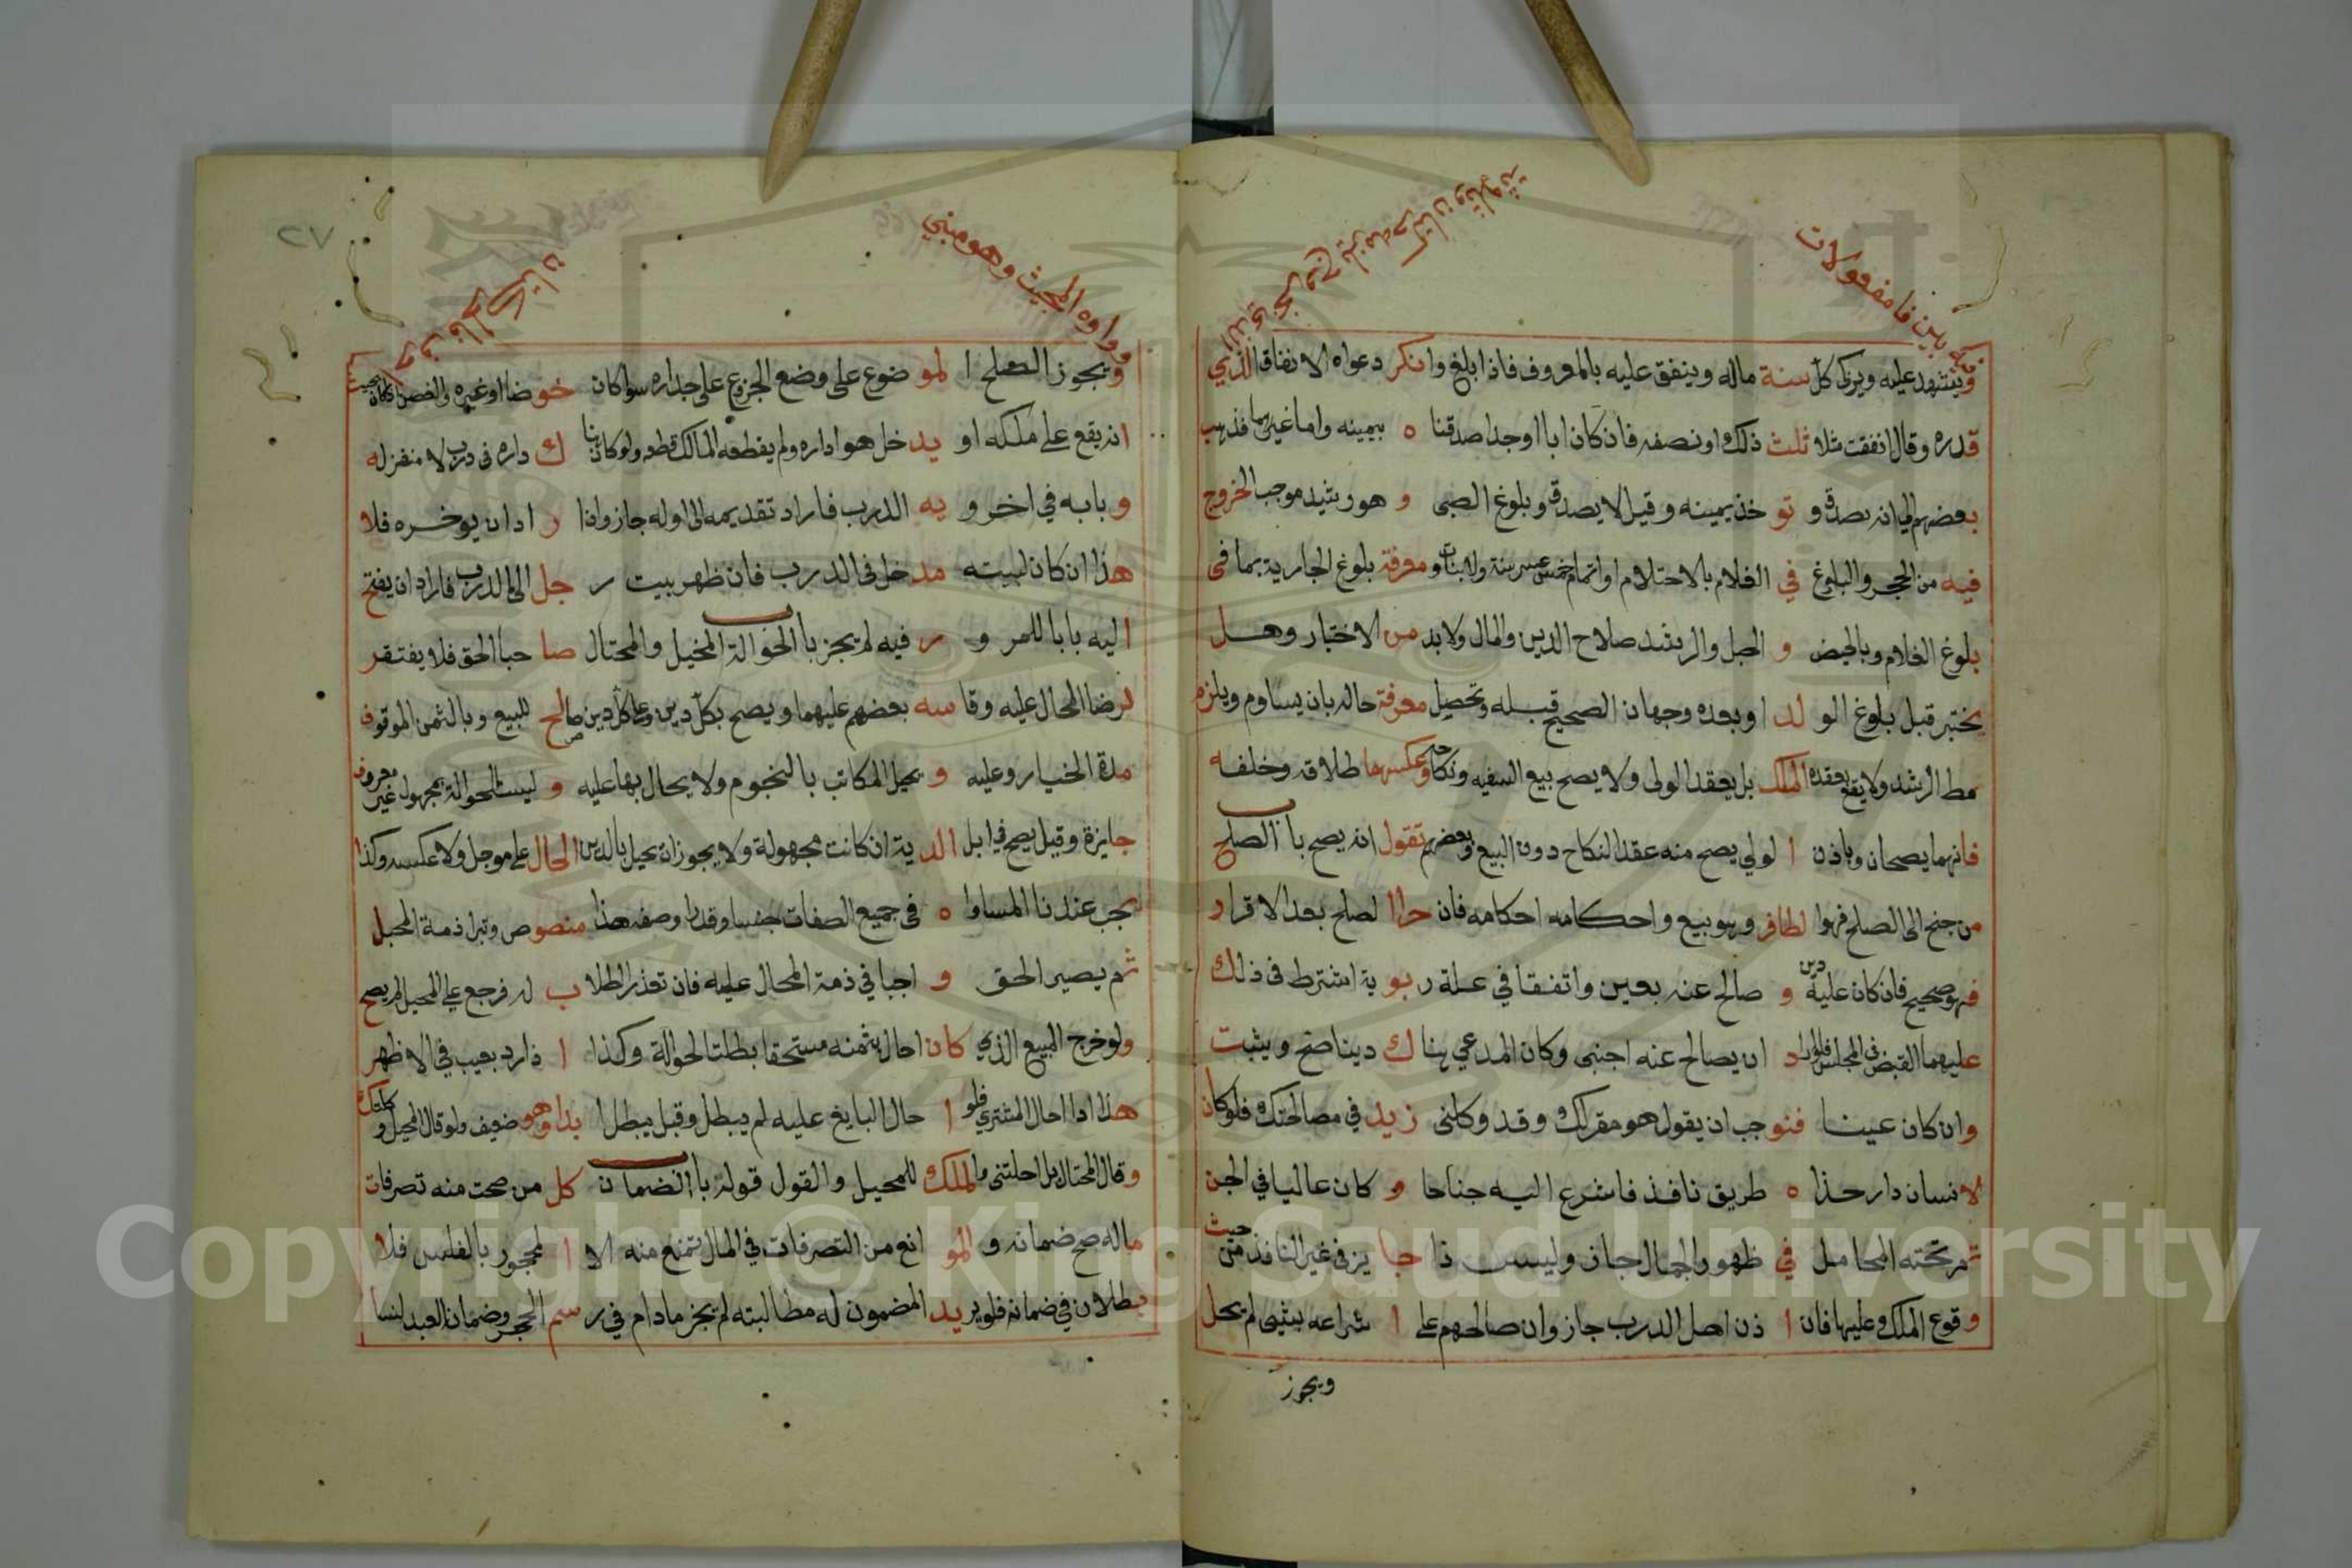 فيه بين فا مفعولات
الذي بحر
ويشهد عليه ويزكى كل سنة ماله وينفق عليه بالمعروف فاذا بلغ وانكر دعواه الانفاق الذي
قدره وقال انفقت مثلا ثلث ذلك او نصفه فان كان ابا او جدا صدقنا ه بيمينه واما غيرهما فذهب
بعضهم الى انه يصدق و تو خذ يمينه وقيل لا يصدق وبلوغ الصبى و هو رشيد موجب الخروج
فيه من الحجر والبلوغ في الغلام بالاحتلام او اتمام خمس عشر سنة والانبات ومعرفة بلوغ الجارية بما فى
بلوغ الغلام وبالحيض و الحبل والرشد صلاح الدين والمال ولا بد من الاختبار وهل
يختبر قبل بلوغ الو لد او بعده وجهان الصحيح قبله وتحصيل معرفة حاله بان يساوم ويلزم
مط الرشد ولا يقع بعقده الملك بل يعقد الولى ولا يصح بيع السفيه ونكاحه وعكسهما طلاقه وخلفه
فانهما يصحان وباذن ا لولي يصح منه عقد النكاح دون البيع وبعضهم تقول انه يصح باب الصلح
من جنح الى الصلح فهوا لظافر وهو بيع واحكامه احكامه فان جراا لصلح بعد الاقرار
فهو صحيح فان كان عليه دين و صالح عنه بعين واتفقا في علة ر بو ية اشترط فى ذلك
عليهما القبض فى المجلس فلو ارا د ان يصالح عنه اجنبى وكان المدعي هنا ك دينا صح ويثبت
وان كان عينا فنو جب ان يقول هو مقر لك وقد وكلنى زيد في مصالحتك فلو كان
لانسان دار حذا ه طريق نافذ فاشرع اليه جناحا و كان عاليا في الجن
تمر تحته المحامل في ظهور الجمال جاز وليس ذا جا يز فى غير النافذ من حيث
وقوع الملك عليها فان ا ذن اهل الدرب جاز وان صالحهم على ا شراعه بشيى لم يحل
ويجوز
٢٧
وواوه المحيث وهو مبني
ويجوز الصلح ا لمو ضوع على وضع الجزوع على جداره سوا كان خو ضا او غيره والغصن اذا كان بحيث
انه يقع على ملكه او يد خل هوا داره ولم يقطعه المالك قطعه ولو كان هنا ك داره فى درب لا منفذ له
و بابه في اخر و يه الدرب فاراد تقديمه الى اوله جاز واذا ر ادان يوخره فلا
هذا ان كان لبيته مد خل فى الدرب فان ظهر بيت ر جل الى الدرب فاراد ان يفتح
اليه بابا للمر و ر فيه لم يجز باب الحوالة المحيل والمحتال صا حبا الحق فلا يفتقر
لرضا المحال عليه وقا سه بعضهم عليهما ويصح بكل دين وعلى كل دين صالح للبيع وبالثمن الموقوف
مدة الخيار وعليه و يحيل المكاتب بالنجوم ولا يحال بها عليه و ليست الحوالة بمجهول غير معروف
جايزة وقيل يصح في ابل الد ية ان كانت مجهولة ولا يجوز ان يحيل بالدين الحال على موجل ولا عكسه وكذا
يجب عندنا المساوا ه فى جميع الصفات جنسا وقدرا وصفه هذا منصوص وتبرا ذمة المحيل
ثم يصير الحق و اجبا في ذمة المحال عليه فان تعذر الطلا ب له فرجع على المحيل لم يصح
ولو خرج المبيع الذي كان احال بثمنه مستحقا بطلت الحوالة وكذا ا ذا رد بعيب في الاظهر
هذا اذا احال المشتري فلو ا حال البايع عليه لم يبطل وقيل يبطل ا بدا وهو ضعيف ولو قال المحيل وكلتك
وقال المحتال بل احلتنى ما لملك للمحيل والقول قوله باب الضمان كل من صحت منه تصرفات
ماله صح ضمانه و المو انع من التصرفات في المال تمنع منه الا ا لمحجور بالفلس فلا
بطلان في ضمانه فلو يريد المضمون له مطالبته لم يجز مادام في ر سم الحجر وضمان العبد لسا
Copyright © King Saud University